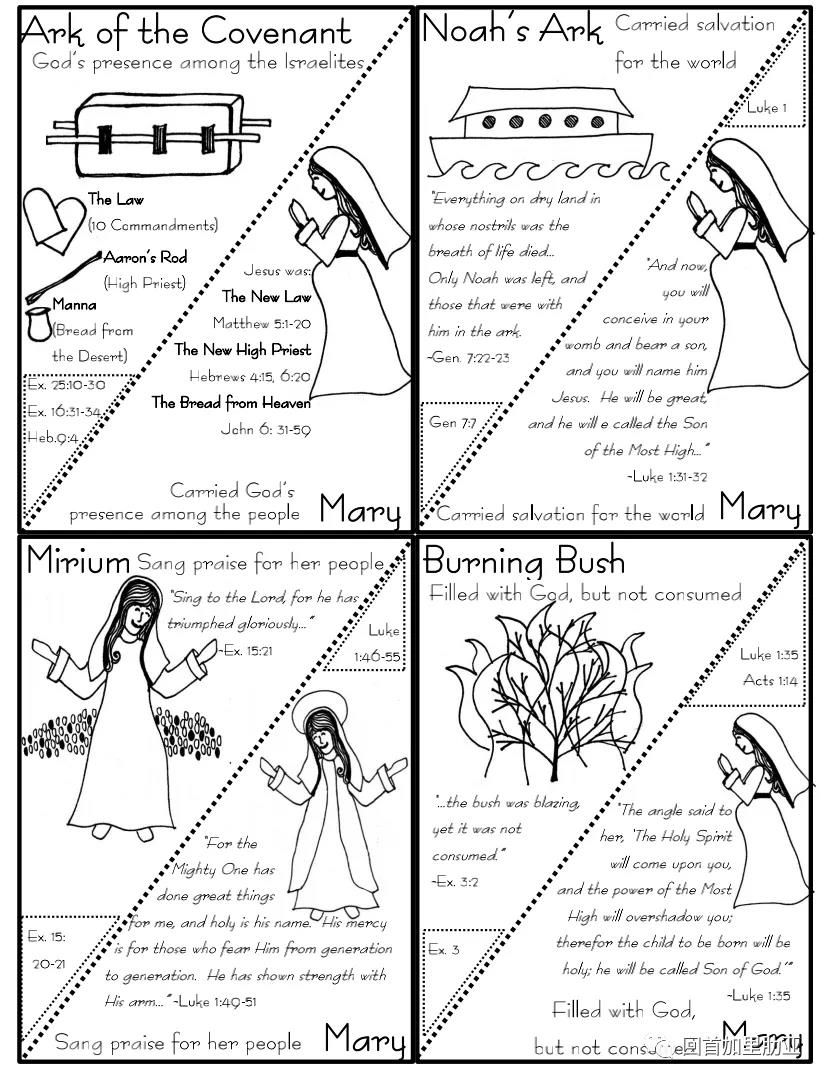 Ark of the Covenant
God's presence among the Israelites
The Law
(10 Commandments)
Aaron's Rod
(High Priest)
Manna
(Bread from
the Desert)
Ex. 25:10-30
Ex. 16:31-34
Heb.9:4
Jesus was:
The New Law
Matthew 5:1-20
The New High Priest
Hebrews 4:15, 6:20
The Bread from Heaven
John 6: 31-59
Carried God's
presence among the people
Mary
Noah's Ark
Carried salvation
for the world
Luke 1
"Everything on dry land in
whose nostrils was the
breath of life died...
Only Noah was left, and
those that were with
him in the ark.
~Gen. 7:22-23
Gen 7:7
"And now,
you will
conceive in your
womb and bear a son,
and you will name him
Jesus. He will be great,
and he will e called the Son
of the Most High..."
~Luke 1:31-32
Carried salvation for the world
Mary
Mirium Sang praise for her people
"Sing to the Lord, for he has
triumphed gloriously..."
~Ex. 15:21
Luke
1:46-55
"For the
Mighty One has
done great things
for me, and holy is his name. His mercy
is for those who fear Him from generation
to generation. He has shown strength with
His arm..." ~Luke 1:49-51
Ex. 15:
20-21
Sang praise for her people
Mary
Burning Bush
Filled with God, but not consumed
Luke 1:35
Acts 1:14
"...the bush was blazing,
yet it was not
consumed."
~Ex. 3:2
Ex. 3
"The angle said to
her, 'The Holy Spirit
will come upon you,
and the power of the Most
High will overshadow you;
therefor the child to be born will be
holy; he will be called Son of God.'"
~Luke 1:35
Filled with God,
but not consumed
Mary
圆首加里肋亚